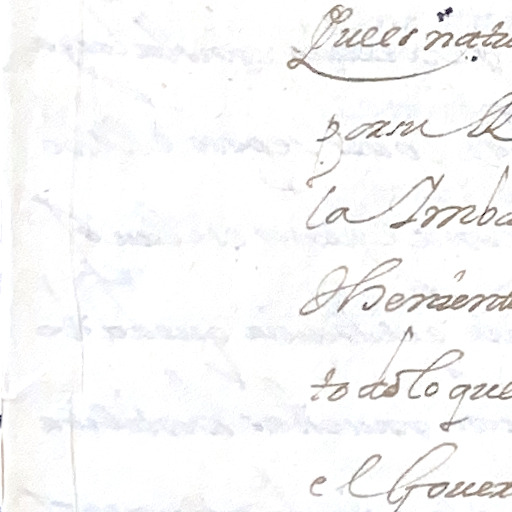 Que es natu
por su R
la Imba
theniend
todo lo que
el Gover